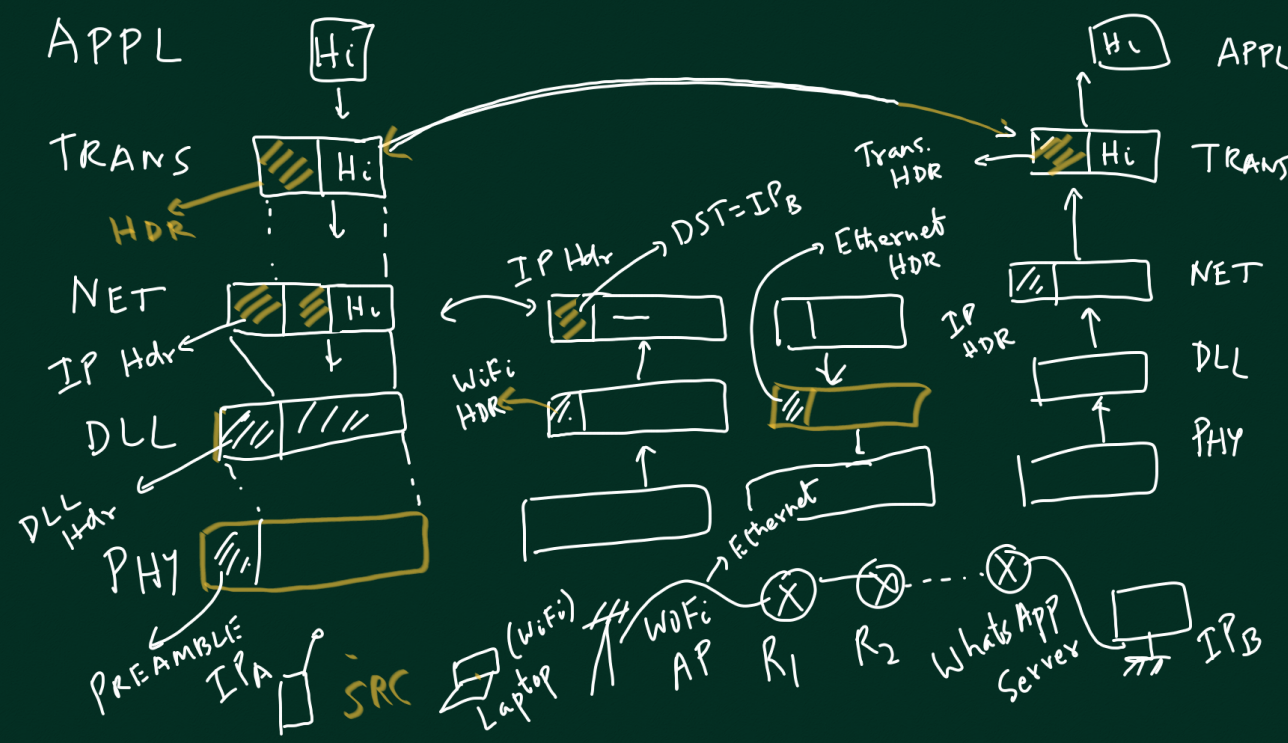 APPL
Hi
TRANS
Hi
HDR
NET
Hi
IP Hdr
DLL
DLL
Hdr
PHY
PREAMBLE
IPA
SRC
IP Hdr
DST=IPB
WiFi
HDR
Ethernet
HDR
Ethernet
(WiFi)
Laptop
WiFi
AP
R1
R2
WhatsApp
Server
IPB
Hi
APPL
Trans.
HDR
Hi
TRANS
NET
IP
HDR
DLL
PHY